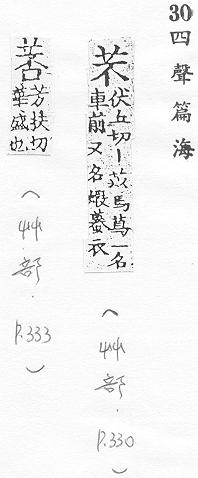 30四聲篇海
芣
伏丘切丨苡馬舄一名
車前又名蝦蟇衣
(艸部.P.330)
芳扶切
華盛也
(艸部.P.333)